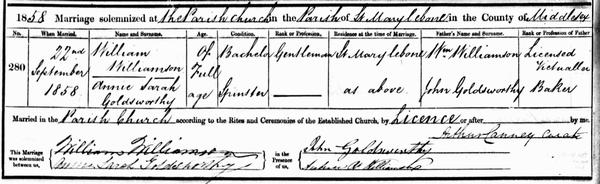 1858 Marriage solemnized at the Parish Church in the Parish of St Marylebone in the County of Middlesex
No. When Married. Name and Surname. Age. Condition. Rank or Profession. Residence at the time of Marriage. Father's Name and Surname. Rank or Profession of Father
280 22nd September 1858 William Williamson Of Full age Bachelor Gentleman St Marylebone Wm Williamson Licensed Victualler
Annie Sarah Goldsworthy Spinster as above. John Goldsworthy Baker
Married in the Parish Church according to the Rites and Ceremonies of the Established Church, by Licence or after, by me,
Arthur Canney Curate
This Marriage was solemnized between us, William Williamson Annie Sarah Goldsworthy in the Presence of us, John Goldsworthy